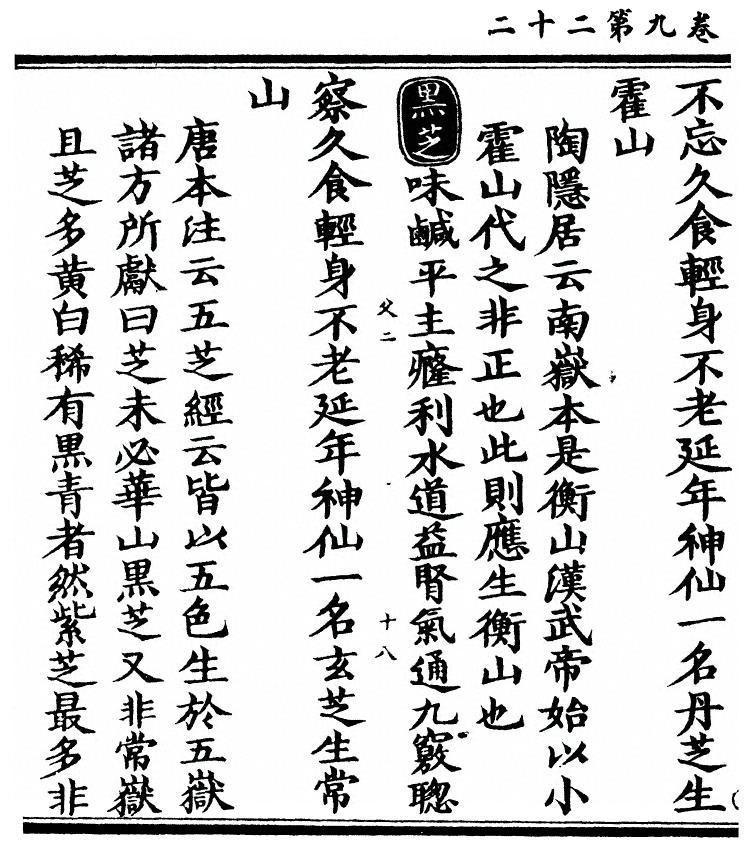 卷九第二十二
不忘久食輕身不老延年神仙一名丹芝生
霍山
陶隱居云南嶽本是衡山漢武帝始以小
霍山代之非正也此則應生衡山也
黑芝味鹹平主癃利水道益腎氣通九竅聦
父二
十八
察久食輕身不老延年神仙一名玄芝生常
山
唐本注云五芝經云皆以五色生於五嶽
諸方所獻曰芝未必華山黑芝又非常嶽
且芝多黃白稀有黑青者然紫芝最多非